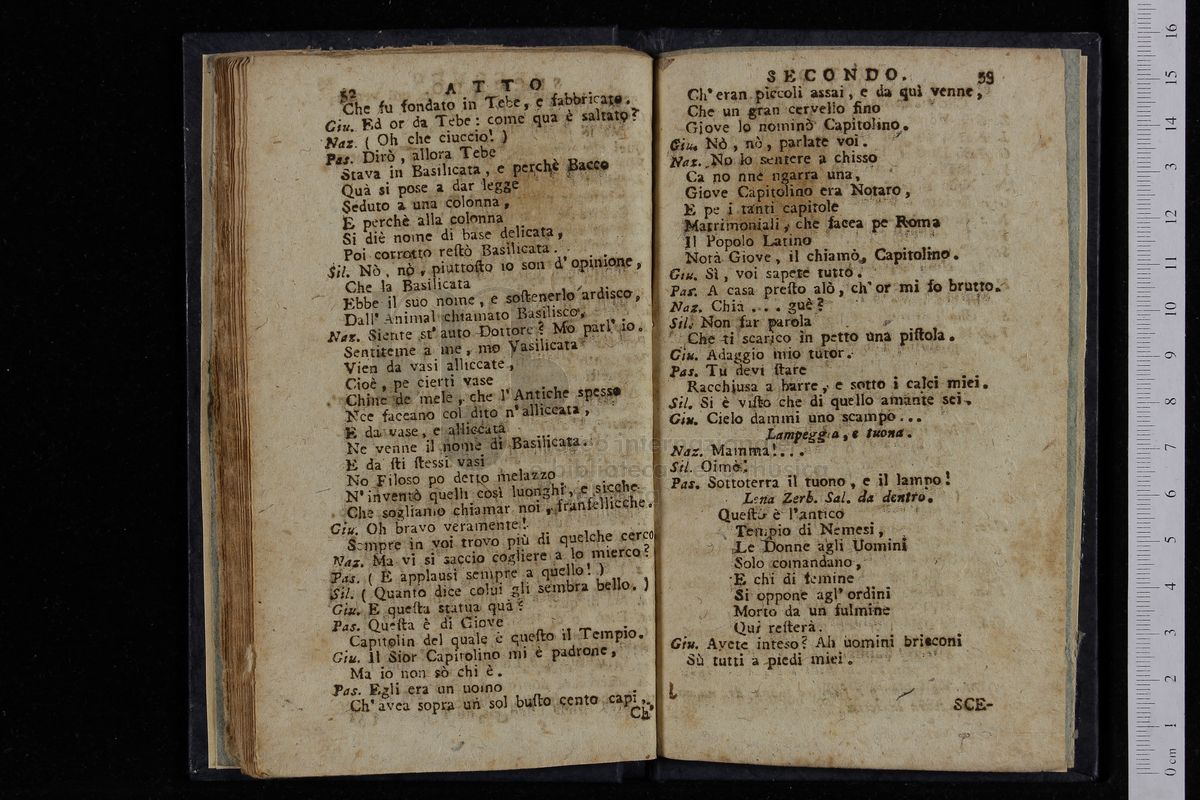 52 ATTO
Che fu fondato in Tebe, e fabbricato.
Giu. Ed or da Tebe: come qua è saltato?
Naz. ( Oh che ciuccio! )
Pas. Dirò, allora Tebe
Stava in Basilicata, e perchè Bacco
Quà si pose a dar legge
Seduto a una colonna,
E perchè alla colonna
Si diè nome di base delicata,
Poi corrotto reſtò Basilicata.
Sil. Nò, nò, piuttoſto io son d'opinione,
Che la Basilicata
Ebbe il suo nome, e soſtenerlo ardisco,
Dall' Animal chiamato Basilisco.
Naz. Siente st' auto Dottore? Mo parl' io.
Sentiteme a me, mo Vasilicata
Vien da vasi alliccate,
Cioè, pe cierti vase
Chine de mele, che l'Antiche spesso
Nce faceano col dito n'alliccata,
E da vase, e alliccata
Ne venne il nome di Basilicata.
E da ſti ſtessi vasi
No Filoso po detto melazzo
N'inventò quelli così luonghi, e sicche
Che sogliamo chiamar noi, franfellicche.
Giu. Oh bravo veramente!
Sempre in voi trovo più di quelche cerco
Naz. Ma vi si saccio cogliere a lo mierco?
Pas. ( E applausi sempre a quello! )
Sil. ( Quanto dice colui gli sembra bello. )
Giu. E queſta statua quà?
Pas. Queſta è di Giove
Capitolin del quale è queſto il Tempio.
Giu. Il Sior Capitolino mi è padrone,
Ma io non sò chi è.
Pas. Egli era un uomo
Ch'avea sopra un sol buſto cento capi,
Ch'
SECONDO. 39
Ch'eran piccoli assai, e da quì venne,
Che un gran cervello fino
Giove lo nominò Capitolino.
Giu. Nò, nò, parlate voi.
Naz. No lo sentere a chisso
Ca no nne ngarra una,
Giove Capitolino era Notaro,
E pe i tanti capitole
Matrimoniali, che facea pe Roma
Il Popolo Latino
Notà Giove, il chiamò, Capitolino.
Giu. Sì, voi sapete tutto.
Pas. A casa preſto alò, ch'or mi fo brutto.
Naz. Chia ... guè?
Sil. Non far parola
Che ti scarico in petto una piſtola.
Giu. Adaggio mio tutor.
Pas. Tu devi ſtare
Racchiusa a barre, e sotto i calci miei.
Sil. Si è viſto che di quello amante sei.
Giu. Cielo dammi uno scampo...
Lampeggia, e tuona.
Naz. Mamma!...
Sil. Oimè!
Pas. Sottoterra il tuono, e il lampo!
Lena Zerb. Sal. da dentro.
Queſto è l'antico
Tempio di Nemesi,
Le Donne agli Uomini
Solo comandano,
E chi di femine
Si oppone agl' ordini
Morto da un fulmine
Quì reſterà.
Giu. Avete inteso? Ah uomini briaconi
Sù tutti a piedi miei.
SCE-